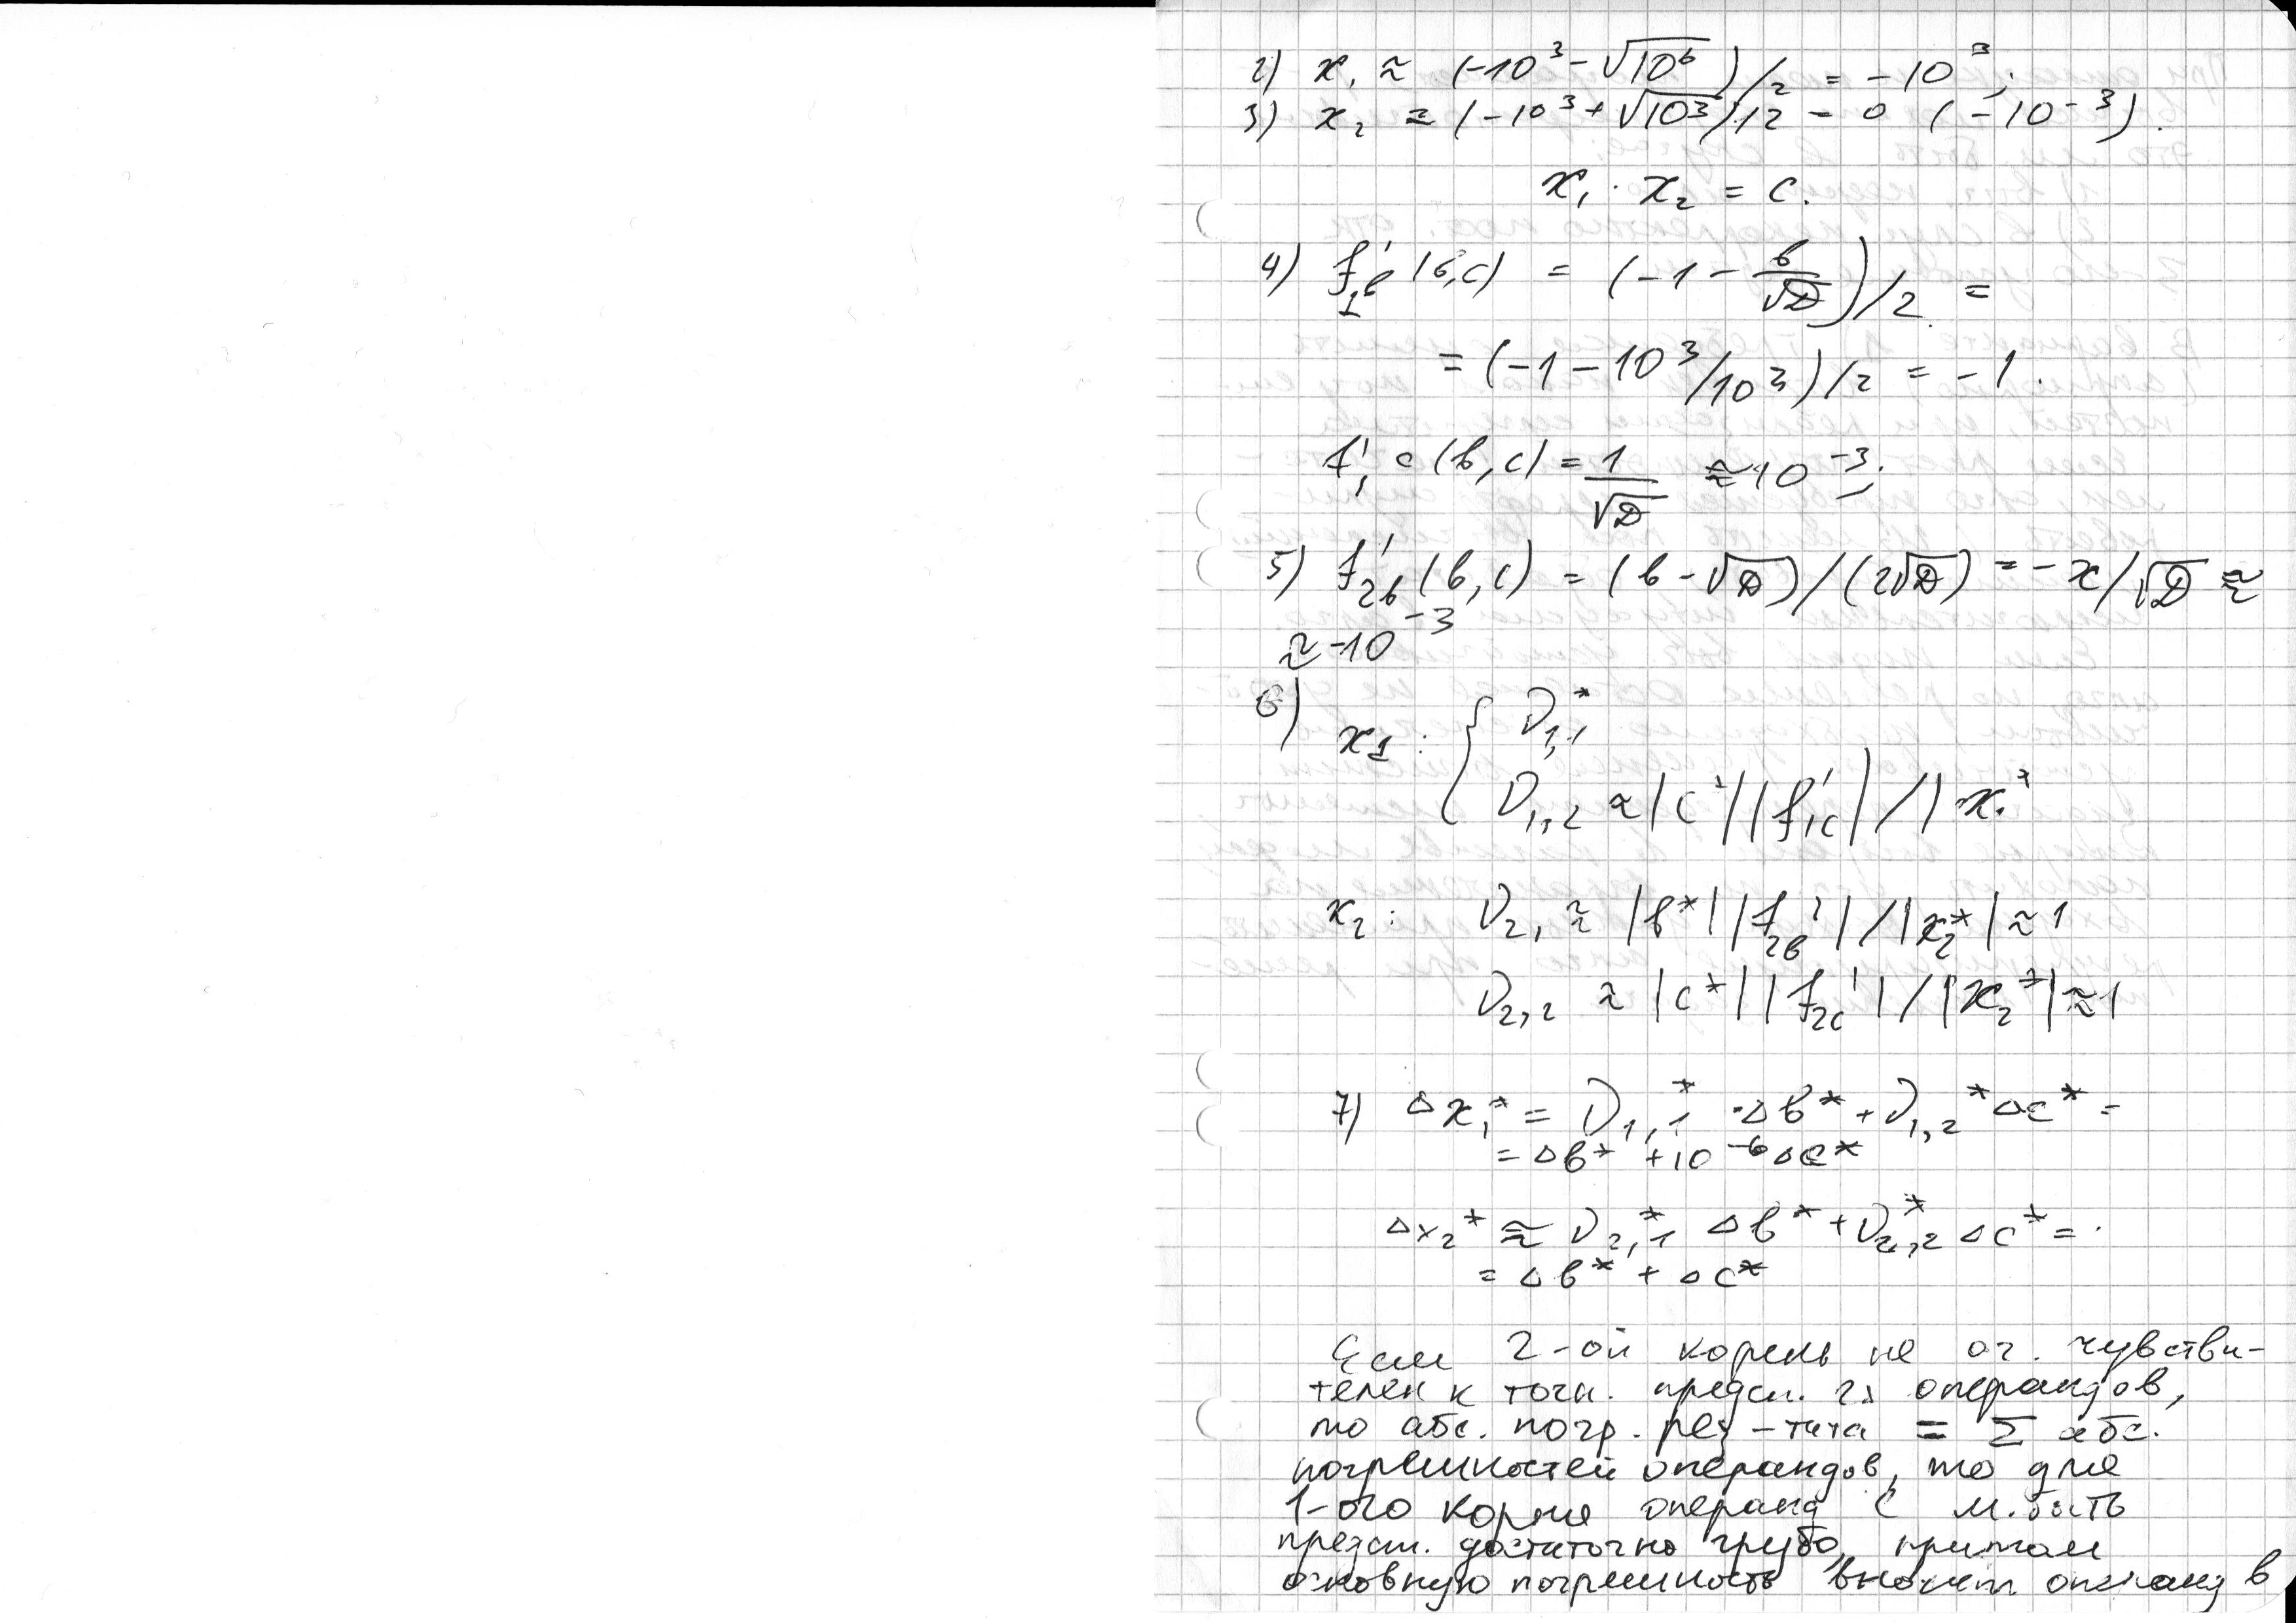 2) x₁ ≈ (-10³ - √10⁶)/2 = -10³;
3) x₂ ≈ (-10³ + √10³)/2 = 0 (-10⁻³).
x₁ · x₂ = c.
4) f'₁в (в,c) = (-1 - в/√D)/2 =
= (-1 - 10³/10³)/2 = -1.
f'₁c (в,c) = 1/√D ≈ 10⁻³;
5) f'₂в (в,c) = (в - √D)/(2√D) = -x/√D ≈
≈ -10⁻³
6) x₁ : { D₁,₁*
D₁,₂ ≈ |c*||f'₁c|/|x₁*
x₂ : D₂,₁ ≈ |в*||f'₂в|/|x₂*| ≈ 1
D₂,₂ ≈ |c*||f'₂c|/|x₂*| ≈ 1
7) Δx₁* = D₁,₁* · Δв* + D₁,₂* Δc* =
= Δв* + 10⁻⁶ Δc*
Δx₂* ≈ D₂,₁* Δв* + D₂,₂* Δc* =
= Δв* + Δc*
Если 2-ой корень не оч. чувстви-
телен к точн. предст. 2х операндов,
то абс. погр. рез-тата = Σ абс.
погрешностей операндов, то для
1-ого корня операнд c м.быть
предст. достаточно грубо, притом
основную погрешность вносит операнд в